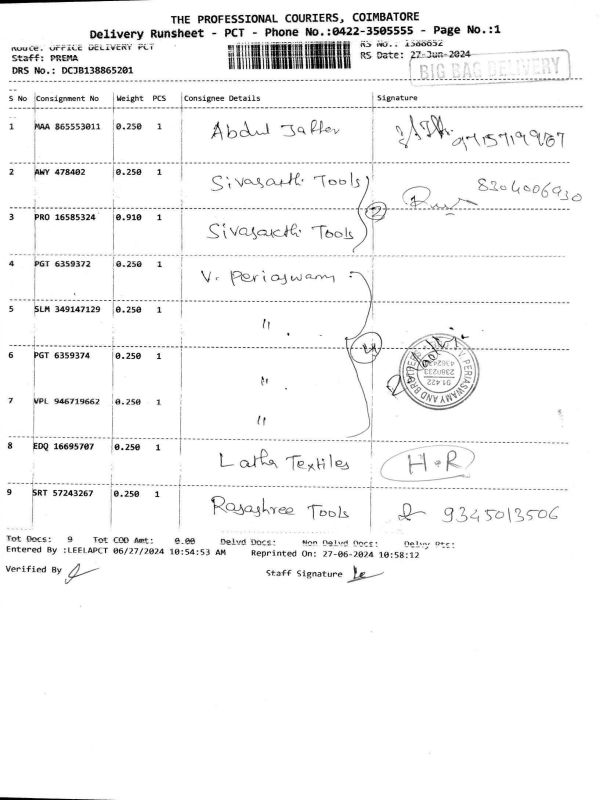 THE PROFESSIONAL COURIERS, COIMBATORE
Delivery Runsheet - PCT - Phone No.:0422-3505555 - Page No.:1
Route. OFFICE DELIVERY PCT RS No.: 1388652
Staff: PREMA RS Date: 27-Jun-2024
DRS No.: DCJB138865201 BIG BAG DELIVERY
S No Consignment No Weight PCS Consignee Details Signature
1 MAA 865553011 0.250 1 Abdul Jaffer
2 AWY 478402 0.250 1 Sivasakthi Tools 8304006930
3 PRO 16585324 0.910 1 Sivasakthi Tools 2
4 PGT 6359372 0.250 1 V. Periaswamy
5 SLM 349147129 0.250 1 "
6 PGT 6359374 0.250 1 "
7 VPL 946719662 0.250 1 "
V. PERIASWAMY AND
8 EDQ 16695707 0.250 1 Latha Textiles H.R
9 SRT 57243267 0.250 1 Rajashree Tools 9345013506
Tot Docs: 9 Tot COD Amt: 0.00 Delvd Docs: Non Delvd Docs: Delvy Pts:
Entered By :LEELAPCT 06/27/2024 10:54:53 AM Reprinted On: 27-06-2024 10:58:12
Verified By Staff Signature